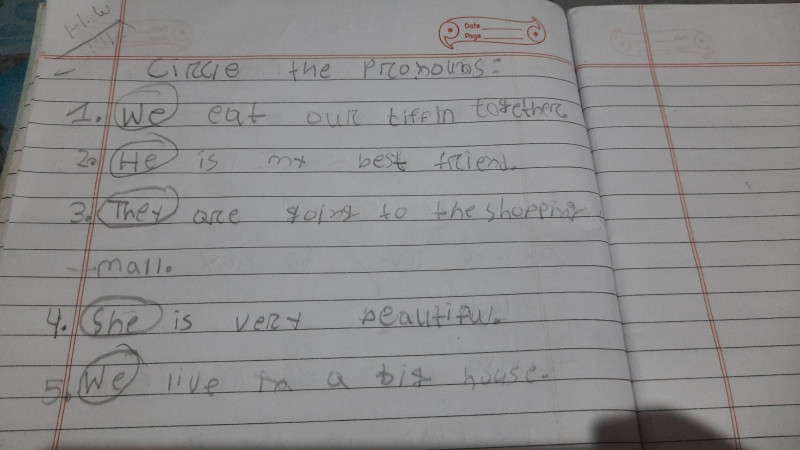 H.W
Date
Page
Circle the Pronouns:
1. We eat our tiffin together.
2. He is my best friend.
3. They are going to the shopping
mall.
4. She is very beautiful.
5. We live in a big house.